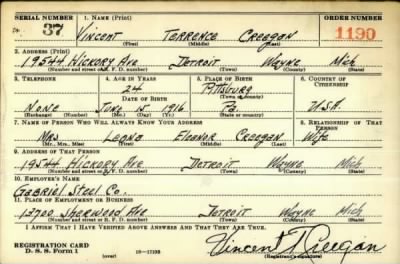 SERIAL NUMBER 1. NAME (Print) ORDER NUMBER
37 Vincent Terrence Creegan 1190
(First) (Middle) (Last)
2. ADDRESS (Print)
19544 Hickory Ave Detroit Wayne Mich
(Number and street or R. F. D. number) (Town) (County) (State)
3. TELEPHONE 4. AGE IN YEARS 5. PLACE OF BIRTH 6. COUNTRY OF CITIZENSHIP
24 Pittsburg
DATE OF BIRTH (Town or county)
None June 15 1916 Pa. U.S.A.
(Exchange) (Number) (Mo.) (Day) (Yr.) (State or country)
7. NAME OF PERSON WHO WILL ALWAYS KNOW YOUR ADDRESS 8. RELATIONSHIP OF THAT PERSON
Mrs Leona Eleanor Creegan Wife
(Mr., Mrs., Miss) (First) (Middle) (Last)
9. ADDRESS OF THAT PERSON
19544 Hickory Ave Detroit Wayne Mich
(Number and street or R. F. D. number) (Town) (County) (State)
10. EMPLOYER'S NAME
Gabriel Steel Co.
11. PLACE OF EMPLOYMENT OR BUSINESS
13700 Sherwood Ave Detroit Wayne Mich
(Number and street or R. F. D. number) (Town) (County) (State)
I AFFIRM THAT I HAVE VERIFIED ABOVE ANSWERS AND THAT THEY ARE TRUE.
REGISTRATION CARD Vincent T Creegan
D. S. S. Form 1 (over) (Registrant's signature)